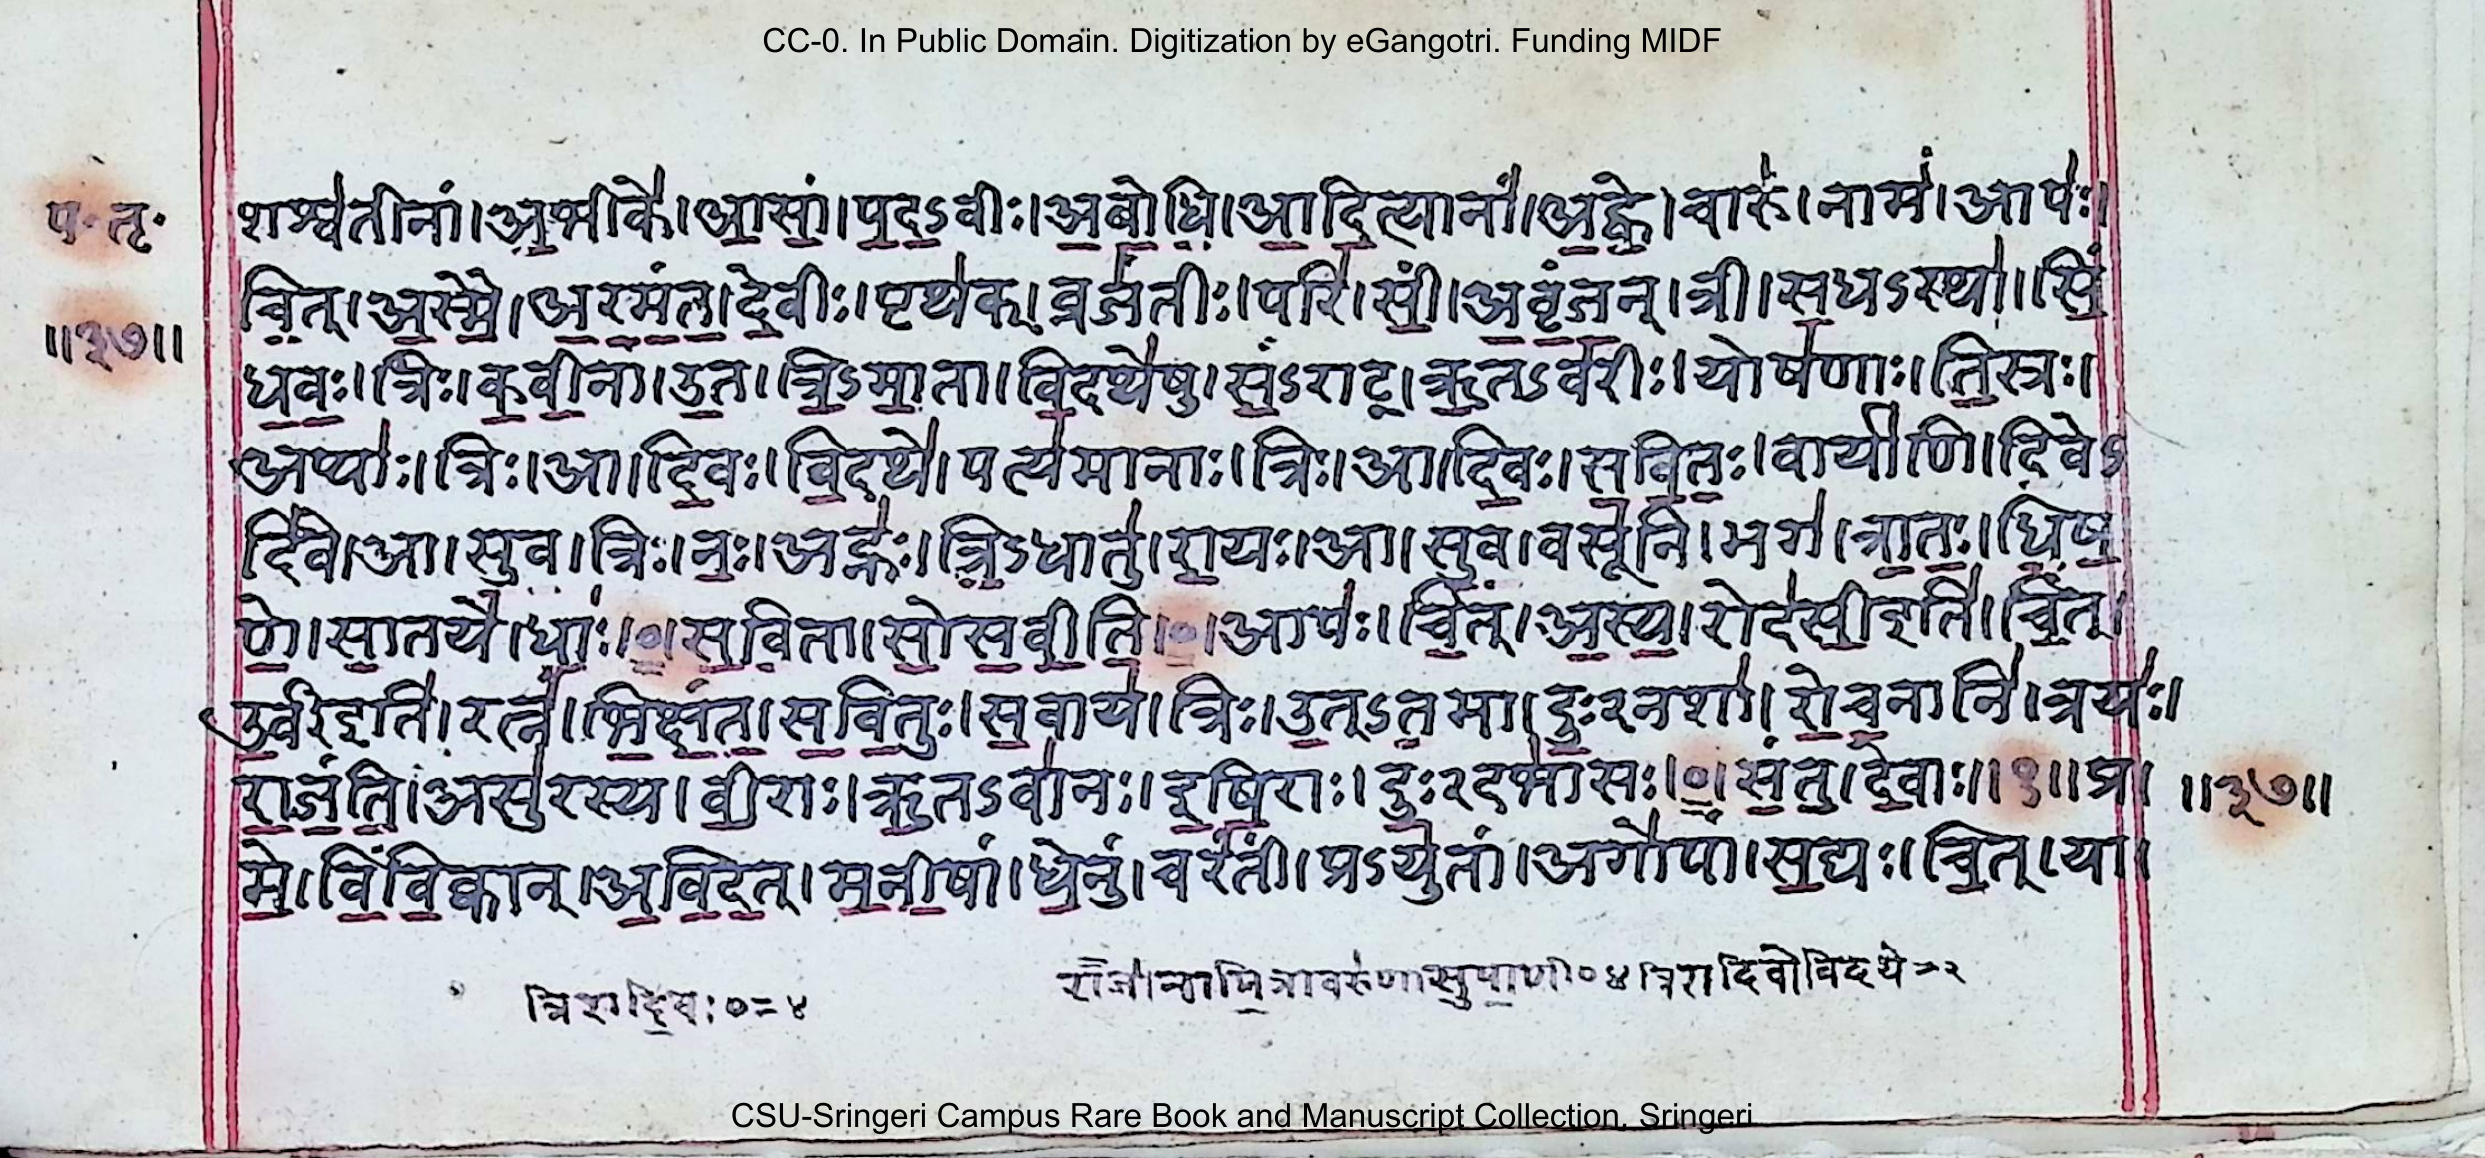 CC-0. In Public Domain. Digitization by eGangotri. Funding MIDF
प॰ तृ॰
॥३७॥
शश्व॑तीनां।अ॒भीके॑।आ॒सां॒।प॒द॒ऽवीः।अ॒बो॒धि॒।आ॒दि॒त्यानां॑।अ॒ह्वे॒।चारु॑।नाम॑।आपः॑।
चि॒त्।अ॒स्मै॒।अ॒र॒मं॒त॒।दे॒वीः।पृथ॑क्।व्रजं॑तीः।परि॑।सीं॒।अ॒वृं॒ज॒न्।त्री।स॒धऽस्था॑।सिं॒
ध॒वः॒।त्रिः।क॒वी॒नां।उ॒त।त्रि॒ऽमा॒ता।वि॒दथे॑षु।सं॒ऽराट्।ऋ॒तऽव॑रीः।योष॑णाः।ति॒स्त्रः।
अप्याः॑।त्रिः।आ।दि॒वः।वि॒दथे॑।पत्य॑मानाः।त्रिः।आ।दि॒वः॒।स॒वि॒तः॒।वार्या॑णि।दि॒वेऽ
दि॑वे।आ।सुव।त्रिः।नः॒।अह्नः॑।त्रि॒ऽधातु॑।रा॒यः।आ।सु॒व॒।वसू॑नि।भग॑।त्रा॒तः॒।धि॒ष॒
णे॒।सा॒तये॑।धाः॒।०।स॒वि॒ता।सो॒स॒वी॒ति॒।०।आपः॑।चि॒त्।अ॒स्य॒।रोद॑सी॒इति॑।चि॒त्।
उ॒र्वीइति॑।रत्नं॑।भि॒क्षं॒त॒।स॒वि॒तुः।स॒वाय॑।त्रिः।उ॒त्ऽत॒मा।दुः॒२नशा॑।रो॒च॒नानि॑।त्रयः॑।
रा॒जं॒ति॒।असु॑रस्य।वी॒राः।ऋ॒तऽवा॑नः।इ॒षि॒राः।दुः॒२दभा॑सः।०।सं॒तु॒।दे॒वाः॥१॥प्र।
॥३७॥
मे॒।वि॒वि॒क्वान्।अ॒वि॒द॒त्।म॒नी॒षां।धे॒नुं।चरं॑तीं।प्रऽयु॑तां।अगो॑पां।स॒द्यः।चि॒त्।या।
त्रिरादि॒वः०=४
राजा॑नामि॒त्रावरु॑णासुपा॒णी०४त्रिरादिवोविदथे=२
CSU-Sringeri Campus Rare Book and Manuscript Collection, Sringeri